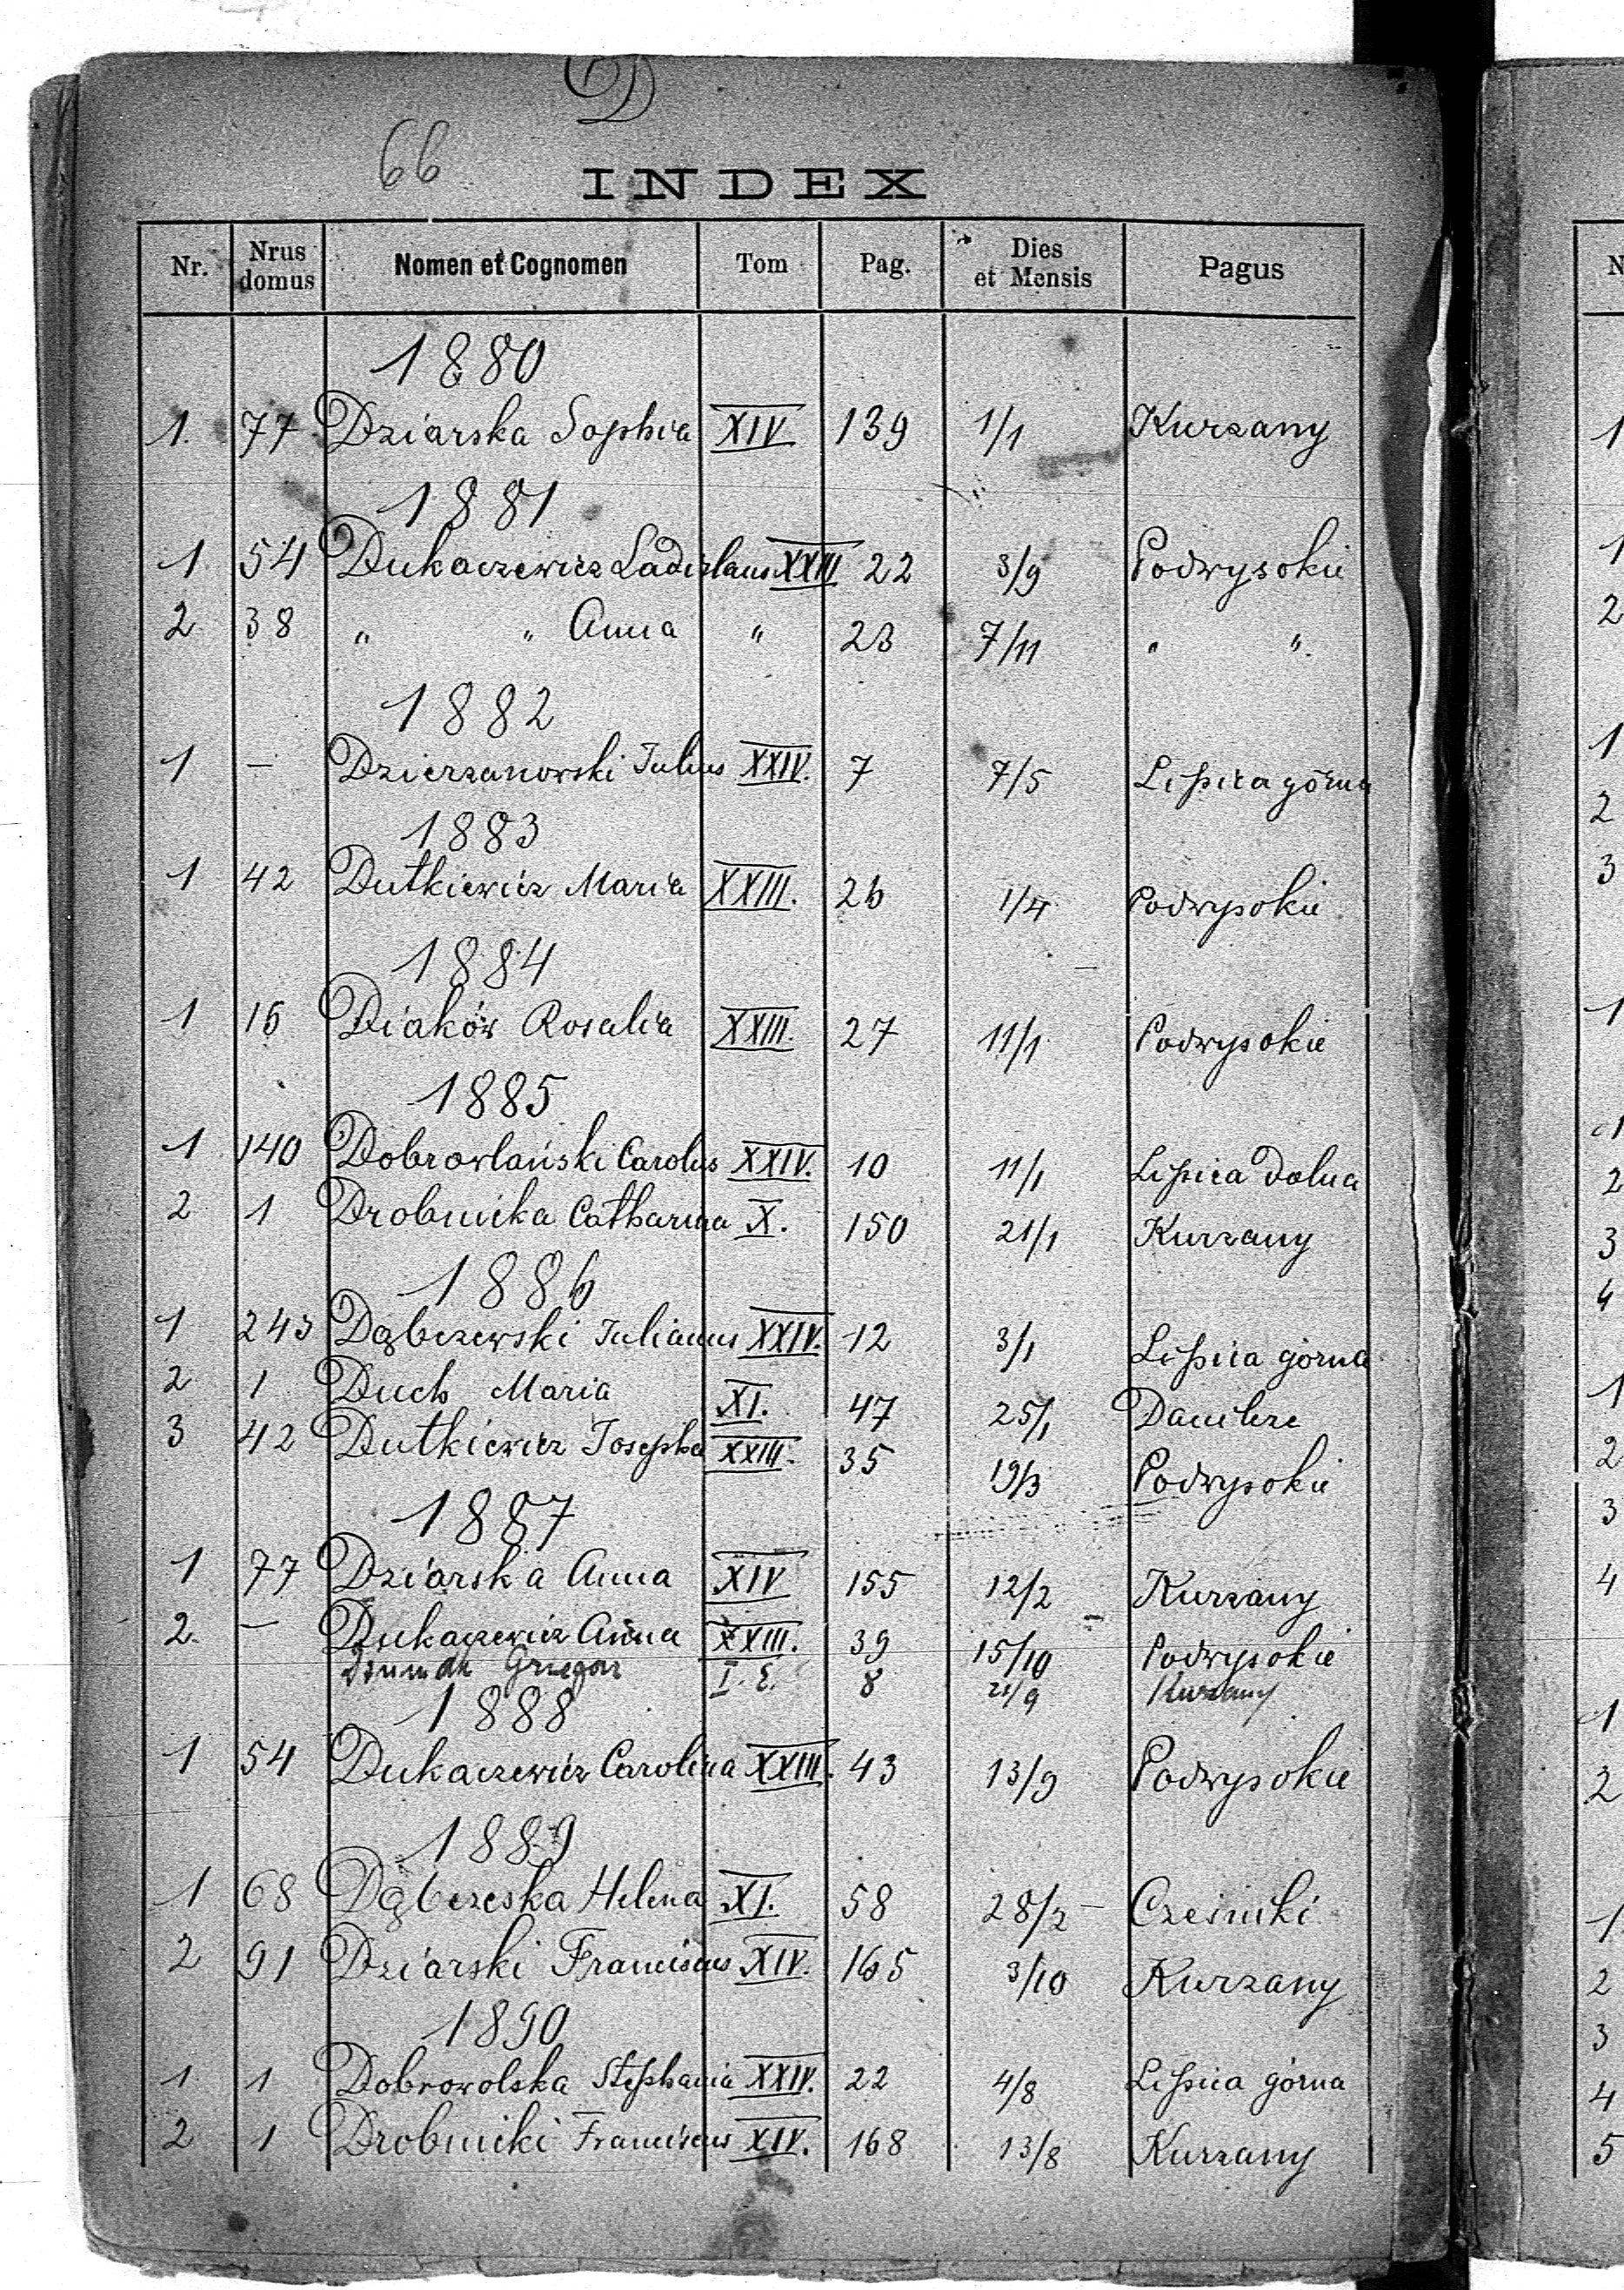 D
66
INDEX
Nr. Nrus domus Nomen et Cognomen Tom Pag. Dies et Mensis Pagus
1880
1. 77 Dziarska Sophia XIV 139 1/1 Kurzany
1881
1 54 Dukaczewicz Ladislaus XXIII 22 3/9 Podwysokie
2 38 " " Anna " 23 7/11 " "
1882
1 – Dzierzanowski Julius XXIV. 7 7/5 Lipica górna
1883
1 42 Dutkiewicz Maria XXIII. 26 1/4 Podwysokie
1884
1 16 Diaków Rosalia XXIII. 27 11/1 Podwysokie
1885
1 140 Dobrowlański Carolus XXIV. 10 11/1 Lipica dolna
2 1 Drobnicka Catharina X. 150 21/1 Kurzany
1886
1 243 Dąbczewski Julianus XXIV. 12 3/1 Lipica górna
2 1 Duch Maria XI. 47 25/1 Danilcze
3 42 Dutkiewicz Josepha XXIII. 35 19/3 Podwysokie
1887
1 77 Dziarska Anna XIV 155 12/2 Kurzany
2. – Dukaczewicz Anna XXIII. 39 15/10 Podwysokie
Grzegorz I. E. 8 21/9 Kurzany
1888
1 54 Dukaczewicz Carolina XXIII. 43 13/9 Podwysokie
1889
1 68 Dąbczeska Helena XI. 58 28/2 Cześniki
2 91 Dziarski Franciscus XIV. 165 3/10 Kurzany
1890
1 1 Dobrowolska Stephania XXIV. 22 4/8 Lipica górna
2 1 Drobnicki Franciscus XIV. 168 13/8 Kurzany